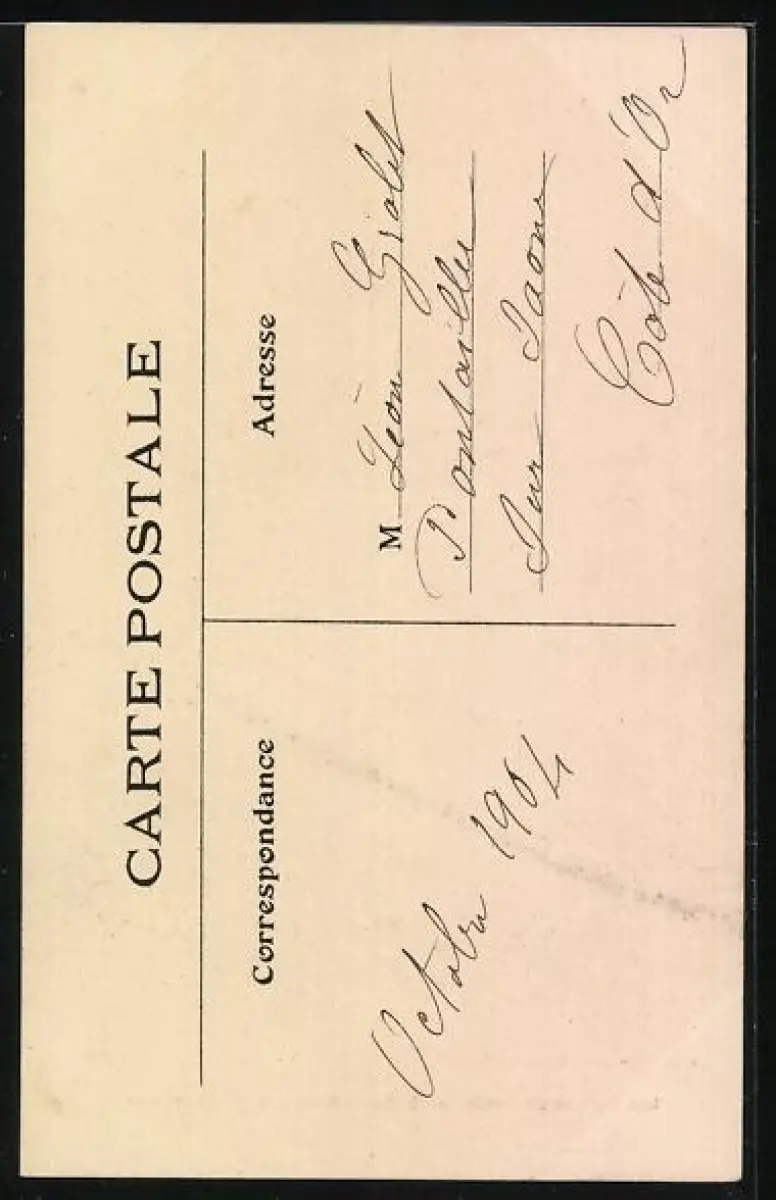 CARTE POSTALE
Correspondance
Octobre 1904
Adresse
M Léon
Pontailler
Sur Saone
Côte d'Or